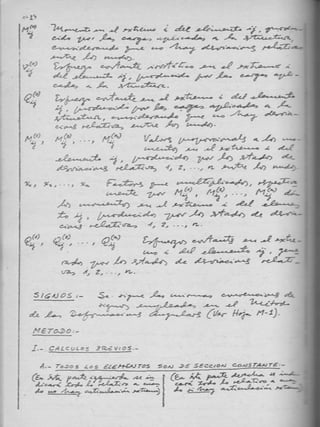 M(o)ij Momento en el extremo i del elemento ij, produ-
cido por las cargas aplicadas a la estructura,
considerando que no hay desviaciones relativas
entre los nudos.
V(o)ij Esfuerzo cortante isostático en el extremo i
del elemento ij, producido por las cargas apli-
cadas a la estructura.
Q(o)ij Esfuerzo cortante en el extremo i del elemento
ij, producido por las cargas aplicadas a la
estructura, considerando que no hay desvia-
ciones relativas entre los nudos.
M(1)ij, M(2)ij, ..., M(n)ij Valores proporcionales a los mo-
mentos en el extremo i del
elemento ij, producidos por los estados de
desviaciones relativas 1, 2, ..., n entre los nudos.
X1, X2, ..., Xn Factores que multiplicados, respectiva-
mente por M(1)ij, M(2)ij, ..., M(n)ij dan
los momentos en el extremo i del elemen-
to ij, producidos por los estados de desvia-
ciones relativas 1, 2, ..., n.
Q(1)ij, Q(2)ij, ..., Q(n)ij Esfuerzos cortantes en el extre-
mo i del elemento ij, gene-
rados por los estados de desviaciones relati-
vas 1, 2, ..., n.
SIGNOS.- Se sigue las mismas convenciones de
signos empleadas en el Método
de las Deformaciones Angulares (Ver Hoja M-1).
METODO.-
I.- CALCULOS PREVIOS.-
A.- TODOS LOS ELEMENTOS SON DE SECCION CONSTANTE.-
(En esta parte izquierda se in-
dicará todo lo relativo a cuan-
do no hay articulación extrema)
(En esta parte derecha se indi-
cará todo lo relativo a cuan-
do si hay articulación extrema)